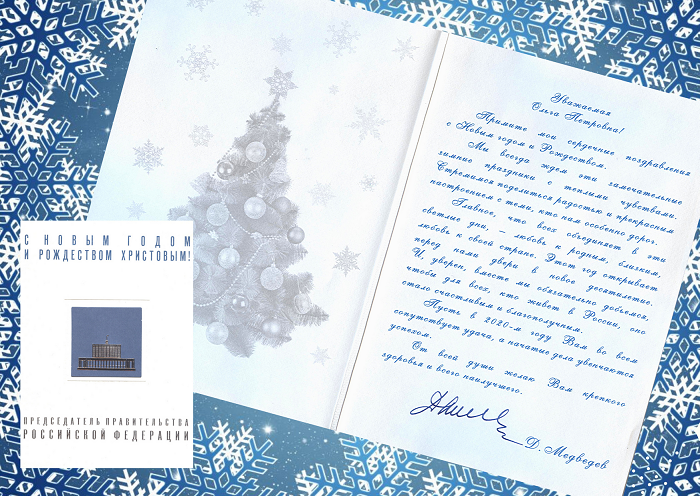 С НОВЫМ ГОДОМ
И РОЖДЕСТВОМ ХРИСТОВЫМ!
ПРЕДСЕДАТЕЛЬ ПРАВИТЕЛЬСТВА
РОССИЙСКОЙ ФЕДЕРАЦИИ
Уважаемая
Ольга Петровна!
Примите мои сердечные поздравления
с Новым годом и Рождеством.
Мы всегда ждем эти замечательные
зимние праздники с теплыми чувствами.
Стремимся поделиться радостью и прекрасным
настроением с теми, кто нам особенно дорог.
Главное, что всех объединяет в эти
светлые дни, – любовь к родным, близким,
любовь к своей стране. Этот год открывает
перед нами двери в новое десятилетие.
И, уверен, вместе мы обязательно добьемся,
чтобы для всех, кто живет в России, оно
стало счастливым и благополучным.
Пусть в 2020-м году Вам во всем
сопутствует удача, а начатые дела увенчаются
успехом.
От всей души желаю Вам крепкого
здоровья и всего наилучшего.
Д. Медведев